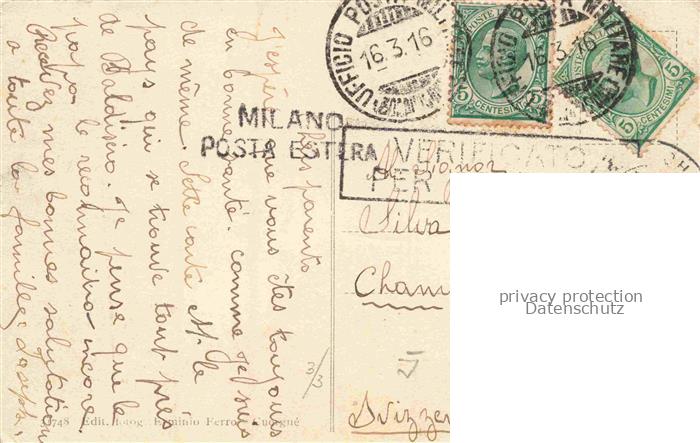 chers parents
J'espère que vous êtes toujours
en bonne santé. comme je suis
de même. Cette carte et le
pays qui se trouve tout près
de Je pense que le
papa le reconnaitra encore.
Recevez mes bonnes salutations
a toute la famille: Joseph.
3748 Edit. fotog. Erminio Ferro, Cuorgné
3/3
UFFICIO POSTA MILITARE
16.3.16
UFFICIO POSTA MILITARE
16.3.16
POSTE ITALIANE
5 CENTESIMI 5
5 CENTESIMI 5
MILANO
POSTA ESTERA
VERIFICATO
PER
Silva
Cham
Svizzer
privacy protection
Datenschutz